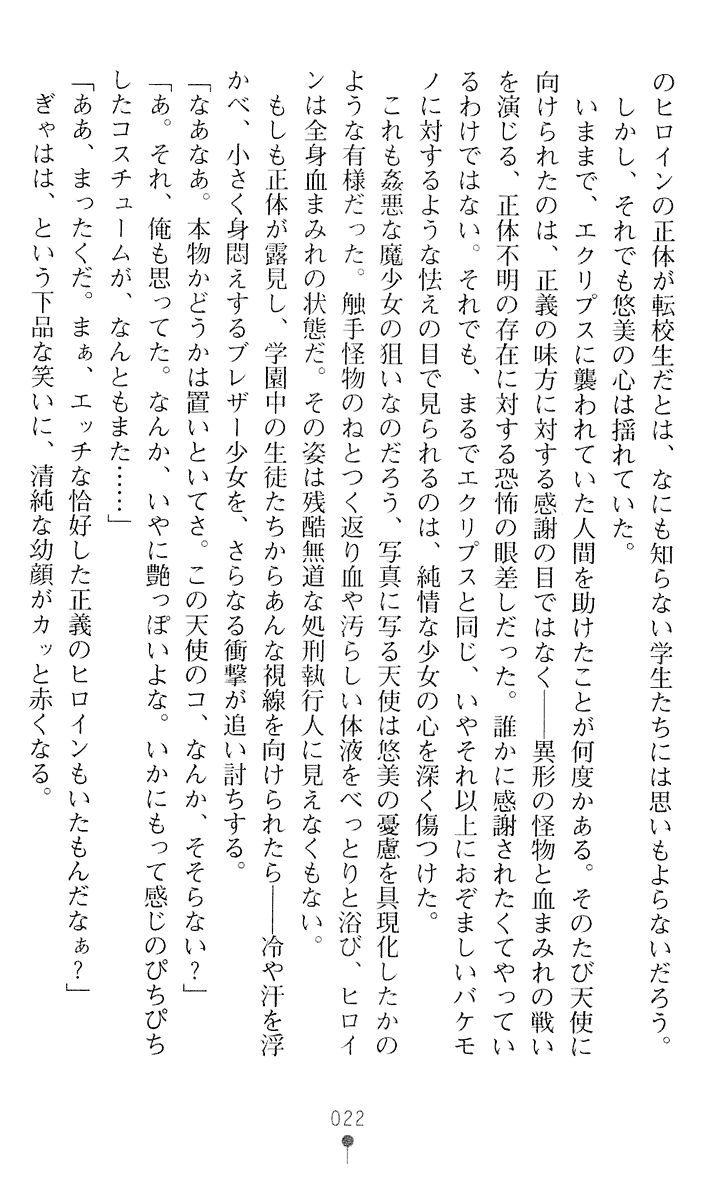 のヒロインの正体が転校生だとは、なにも知らない学生たちには思いもよらないだろう。
しかし、それでも悠美の心は揺れていた。
いままで、エクリプスに襲われていた人間を助けたことが何度かある。そのたび天使に
向けられたのは、正義の味方に対する感謝の目ではなく――異形の怪物と血まみれの戦い
を演じる、正体不明の存在に対する恐怖の眼差しだった。誰かに感謝されたくてやってい
るわけではない。それでも、まるでエクリプスと同じ、いやそれ以上におぞましいバケモ
ノに対するような怯えの目で見られるのは、純情な少女の心を深く傷つけた。
これも姦悪な魔少女の狙いなのだろう、写真に写る天使は悠美の憂慮を具現化したかの
ような有様だった。触手怪物のねとつく返り血や汚らしい体液をべっとりと浴び、ヒロイ
ンは全身血まみれの状態だ。その姿は残酷無道な処刑執行人に見えなくもない。
もしも正体が露見し、学園中の生徒たちからあんな視線を向けられたら――冷や汗を浮
かべ、小さく身悶えするブレザー少女を、さらなる衝撃が追い討ちする。
「なあなあ。本物かどうかは置いといてさ。この天使のコ、なんか、そそらない？」
「あ。それ、俺も思ってた。なんか、いやに艶っぽいよな。いかにもって感じのぴちぴち
したコスチュームが、なんともまた……」
「ああ、まったくだ。まぁ、エッチな恰好した正義のヒロインもいたもんだなぁ？」
ぎゃはは、という下品な笑いに、清純な幼顔がカッと赤くなる。
022